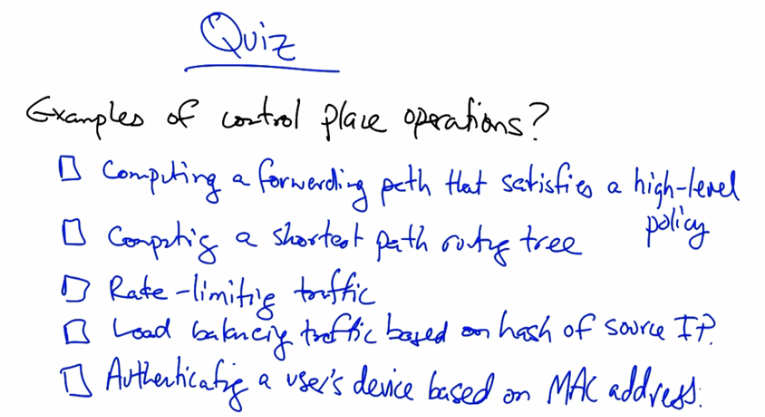 Quiz
Examples of control plane operations?
Computing a forwarding path that satisfies a high-level
policy
Computing a shortest path routing tree
Rate-limiting traffic
Load balancing traffic based on hash of source IP.
Authenticating a user's device based on MAC address.